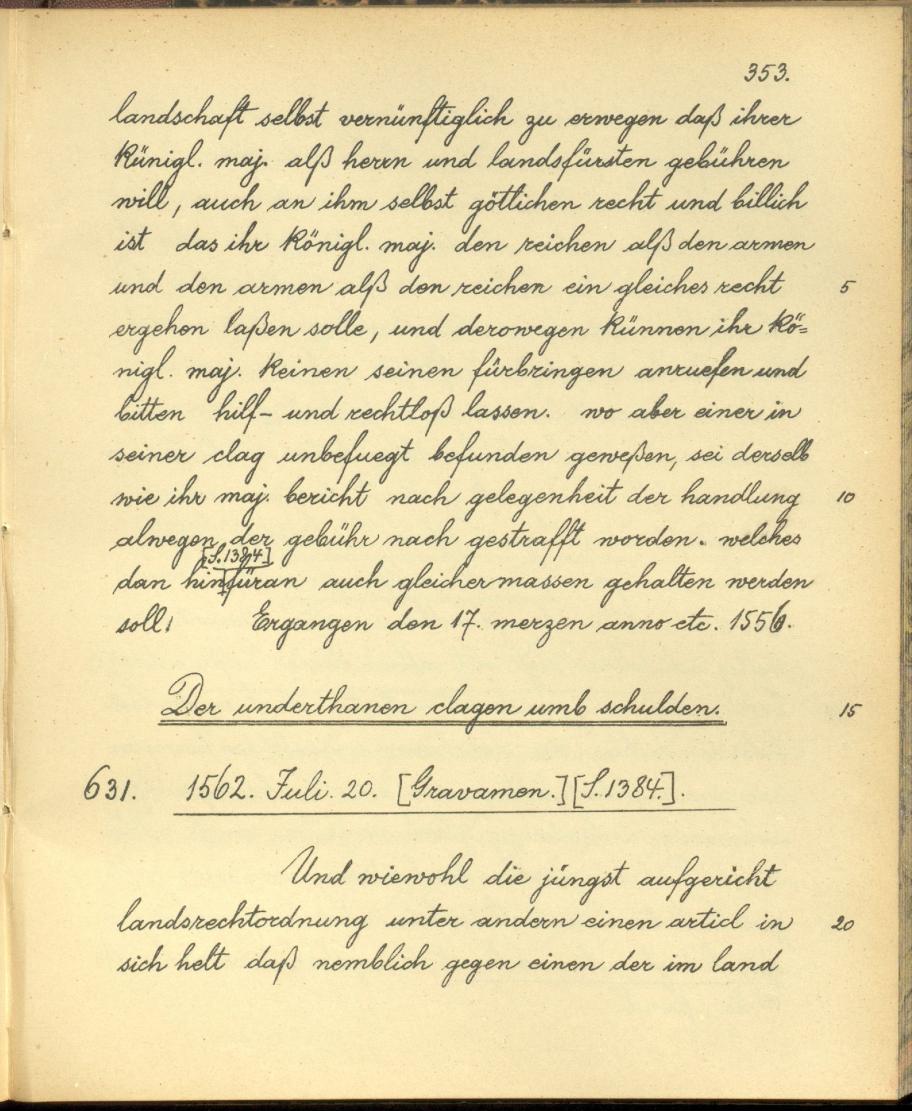 353.
landschaft selbst vernünftiglich zu erwegen daß ihrer
künigl. maj. alß herrn und landsfürsten gebühren
will, auch an ihm selbst göttlichen recht und billich
ist das ihr königl. maj. den reichen alß den armen
und den armen alß den reichen ein gleiches recht 5
ergehen laßen solle, und derowegen künnen ihr kö=
nigl. maj. keinen seinen fürbringen anruefen und
bitten hilf- und rechtloß lassen. wo aber einer in
seiner clag unbefuegt befunden geweßen, sei derselb
wie ihr maj. bericht nach gelegenheit der handlung 10
alwegen der gebühr nach gestrafft worden. welches
[S.1384]
dan hin|füran auch gleichermassen gehalten werden
soll! Ergangen den 17. merzen anno etc. 1556.
Der underthanen clagen umb schulden. 15
631. 1562. Juli. 20. [Gravamen.] [S.1384.].
Und wiewohl die jüngst aufgericht
landsrechtordnung unter andern einen articl in 20
sich helt daß nemblich gegen einen der im land